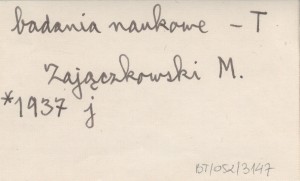 badania naukowe - T
Zajączkowski M.
*1937 j
BT/052/3147